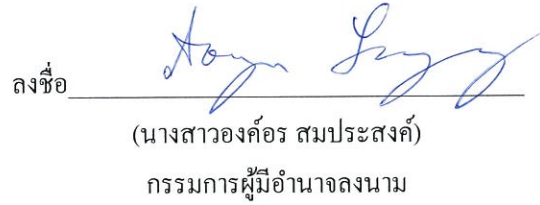 ลงชื่อ
(นางสาวองค์อร สมประสงค์)
กรรมการผู้มีอำนาจลงนาม